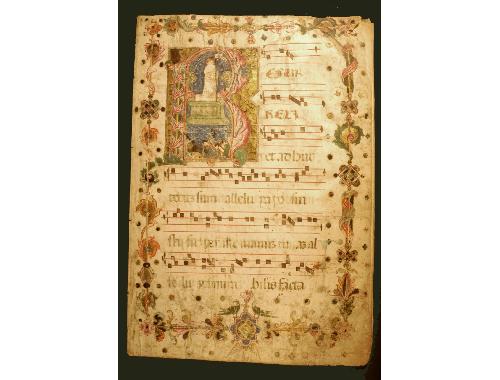 RESUR
REXI
et adhuc
tecum sum allelu ia posui
sti super me manum tu am al
le lu ya mira bilis facta